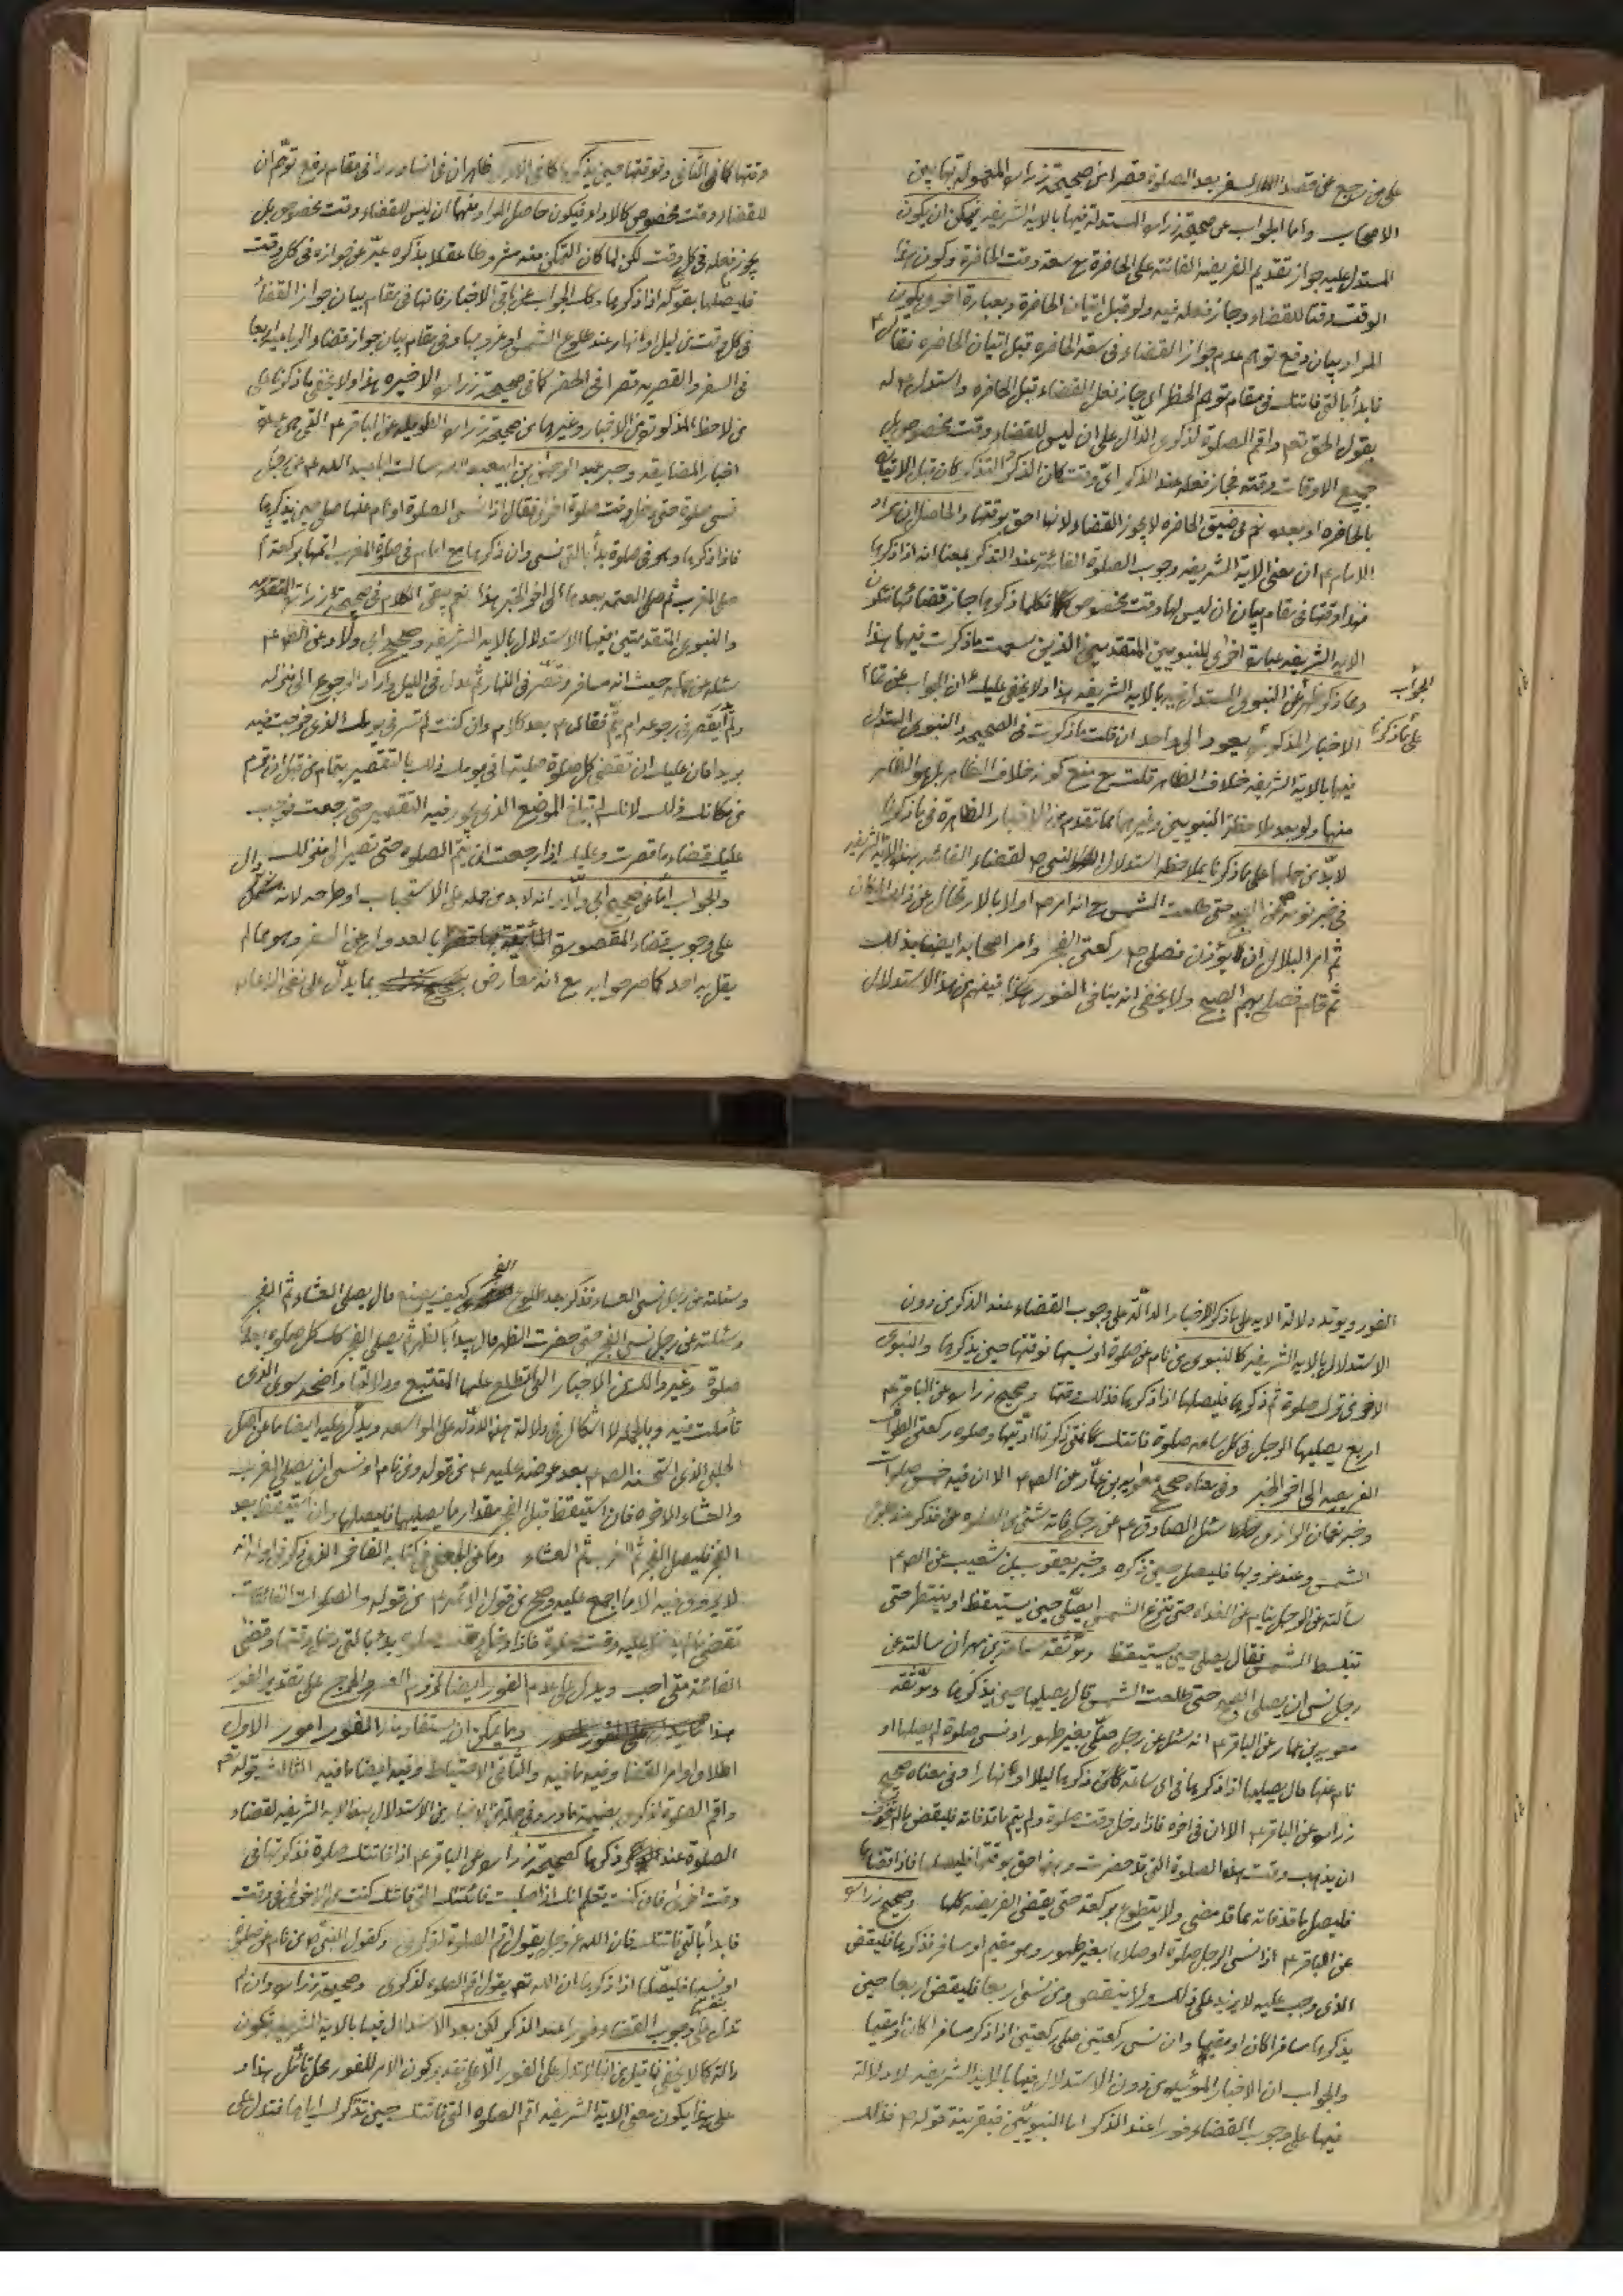 على من رجع عن قصد السفر بعد الصلوة قصرا من صحيحة زراره المعمولة بها بين
الاصحاب واما الجواب عن صحيحة زراره المستدلة فيها بالاية الشريفه فيمكن ان يكون
المستدل عليه جواز تقديم الفريضه الفائته على الحاضرة مع سعة وقت الحاضرة وكون هذا
الوقت وقتا للقضاء وجاز فعله فيه ولو قبل اتيان الحاضرة وبعبارة اخرى يكون
المراد بيان دفع توهم عدم جواز القضاء فى سعة الحاضره قبل اتيان الحاضره فقال ع
فابدأ بالتى فاتتك فى مقام توهم الحظر اى جاز فعل القضاء قبل الحاضره واستدل ع له
بقول الحق تعم واقم الصلوة لذكرى الدّال على ان ليس للقضاء وقت مخصوص بل
جميع الاوقات وقته فجاز فعله عند الذكر اىّ وقت كان الذكر والتذكر كان قبل الاتيان
بالحاضره او بعده نعم فى ضيق الحاضره لا يجوز القضاء لانها احق بوقتها والحاصل ان مراد
الامام ع ان معنى الاية الشريفه وجوب الصلوة الفائته عند التذكر بمعنا انه اذا ذكرها
فهذا وقتها فى مقام بيان ان ليس لها وقت مخصوص فكلما ذكرها جاز قضائها فتكون
الاية الشريفه عبارة اخرى للنبويين المتقدمين الذين سمعت ما ذكرت فيهما هذا
ومما ذكر ظهر عن النبوى المستدل فيه بالاية الشريفه هذا ولا يخفى عليك ان الجواب عن تمام
الجواب
على ما ذكرنا
الاخبار المذكورة يعود الى واحد ان قلت ما ذكرت فى الصحيحه والنبوى المستدل
فيها بالاية الشريفه خلاف الظاهر قلت مع منع كونه خلاف الظاهر بل هو الظاهر
منها ولو بعد ملاحظة النبويين وغيرهما مما تقدم من الاخبار الظاهرة فى ما ذكرنا
لابدّ من حملها على ما ذكرنا بملاحظه استدلال النبى ص لقضاء الفائته بهذه الاية الشريفه
فى خبر نومه عن الصبح حتى طلعت الشمس مع انه امر ص اولا بالارتحال عن ذلك المكان
ثم امر البلال ان يؤذن فصلى ص ركعتى الفجر وامر اصحابه ايضا بذلك
ثم قام فصلى بهم الصبح ولا يخفى انه ينافى الفور هذا فيفهم من هذا الاستدلال
وقتها كما فى الثانى وفوقتها حين يذكرها كما فى الاول ظاهران فى انها وردا فى مقام دفع توهّم ان
للقضاء وقت مخصوص كالاداء فيكون حاصل المراد منهما ان ليس للقضاء وقت مخصوص بل
يجوز فعله فى كل وقت لكن لما كان التمكن منه مشروطا عقلا بذكره عبّر عن جوازه فى كل وقت
فليصلها بقوله اذا ذكرها وكك الجواب عن باقى الاخبار فانها فى مقام بيان جواز القضاء
فى كل وقت من ليل او نهار عند طلوع الشمس او غروبها وفى مقام بيان جواز قضاء الرباعية اربعا
فى السفر والقصريه قصرا فى الحضر كما فى صحيحة زراره الاخيره هذا ولا يخفى ما ذكرنا على
من لاحظ المذكورة من الاخبار وغيرها من صحيحة زراره الطويله عن الباقر ع التى هى عمدة
اخبار المضايقه وخبر عبد الرحمن بن ابيعبد الله سالت ابا عبد الله ع عن رجل
نسى صلوة حتى دخل وقت صلوة اخرى فقال اذا نسى الصلوة او نام عنها صلى حين يذكرها
فاذا ذكرها وهو فى صلوة بدأ بالتى نسى وان ذكرها مع امام فى صلوة المغرب اتمها بركعة ثم
صلى المغرب ثم صلى العتمه بعدها الى اخر الخبر هذا نعم يبقى الكلام فى صحيحة زراره المتقدمه
والنبوى المتقدمتين فيهما الاستدلال بالاية الشريفه وصحيح ابى ولاد عن الصم ع
سئله عن حاله حيث انه مسافر وقصّر فى النهار ثم بدل فى الليل واراد الرجوع الى منزله
ولم يقصر فى رجوعه ام يتمّ فقال ع بعد كلام وان كنت لم تسر فى يومك الذى خرجت فيه
بريدا فان عليك ان تقضى كل صلوة صليتها فى يومك ذلك بالتقصير بتمام من قبل ان تريم
من مكانك ذلك لانك لم تبلغ الموضع الذى يجوز فيه التقصير حتى رجعت فوجب
عليك قضاء ما قصرت وعليك اذا رجعت ان تتم الصلوه حتى تصير الى منزلك
والجواب اما من صحيح ابى ولاد انه لابد من حمله على الاستحباب او طرحه لانه مشتمل
على وجوب قضاء المقصورة بالعدول عن السفر وهو مما لم
يقل به احد كما صرحوا به مع انه معارض بما يدلّ على نفى الاعاده
الفور ويؤيد دلالة الايه على ما ذكر الاخبار الدالّة على وجوب القضاء عند الذكر من دون
الاستدلال بالاية الشريفه كالنبوى من نام عن صلوة او نسيها فوقتها حين يذكرها والنبوى
الاخر من ترك صلوة ثم ذكرها فليصلها اذا ذكرها فذلك وقتها وصحيح زراره عن الباقر ع
اربع يصليها الرجل فى كل ساعه صلوة فاتتك فمتى ذكرتها ادّيتها وصلوه ركعتى الطواف
الفريضه الى اخر الخبر وفى معناه صحيح معاويه بن عمّار عن الصم الا ان فيه خمس صلوات
وخبر نعمان الرازى سئل الصادق ع عن رجل فاته شئى من الصلوه فذكر عند طلوع
الشمس وعند غروبها فليصل حين ذكره وخبر يعقوب بن شعيب عن الصم
سألته عن الرجل ينام عن الغداة حتى تبزغ الشمس ايصلّى حين يستيقظ او ينتظر حتى
تنبسط الشمس فقال يصلى حين يستيقظ وموثقه سماعة بن مهران سالته عن
رجل نسى ان يصلى الصبح حتى طلعت الشمس قال يصليها حين يذكرها وموثقه
معويه بن عمار عن الباقر ع انه سئل عن رجل صلّى بغير طهور او نسى صلوة لم يصلها او
نام عنها قال يصليها اذا ذكرها فى اى ساعة ذكرها ليلا او نهارا وفى معناه صحيح
زراره عن الباقر ع الا ان فى اخره فاذا دخل وقت صلوة ولم يتم ما قد فاته فليقض ما لم يتخوف
ان يذهب وقت هذه الصلوة التى قد حضرت وهذه احق بوقتها فليصلها فاذا قضاها
فليصل ما قد فاته مما قد مضى ولا يتطوع بركعة حتى يقضى الفريضه كلها وصحيح زراره
عن الباقر ع اذا نسى الرجل صلوة او صلاها بغير طهور وهو مقيم او مسافر فذكرها فليقض
الذى وجب عليه لا يزيد على ذلك ولا ينقص ومن نسى اربعا فليقض اربعا حين
يذكرها مسافرا كان او مقيما وان نسى ركعتين صلى ركعتين اذا ذكر مسافرا كان او مقيما
والجواب ان الاخبار المؤيده من دون الاستدلال فيها بالاية الشريفه لا دلالة
فيها على وجوب القضاء فورا عند الذكر اما النبويّين فبقرينة قوله ص فذلك
وسئلته عن رجل نسى العشاء فذكر بعد طلوع الفجر كيف يصنع قال يصلى العشاء ثم الفجر
وسئلته عن رجل نسى الفجر حتى حضرت الظهر قال يبدأ بالظهر ثم يصلى الفجر كك كل صلوة بعدها
صلوة وغير ذلك من الاخبار التى تطلع عليها المتتبع ودلالتها واضحه سوى الذى
تأملت فيه وبالجمله لا اشكال فى دلالة هذه الادّله على المواسعه ويدلّ عليه ايضا ما عن اصل
الحلبى الذى استحسنه الصم ع بعد عرضه عليه ع من قوله ومن نام او نسى ان يصلى المغرب
والعشاء الاخره فان استيقظ قبل الفجر مقدار ما يصليهما فليصلهما وان استيقظ بعد
الفجر فليصل الفجر ثم المغرب ثم العشاء وما عن الجعفى فى كتابه الفاخر الذى ذكر فى اوله انه
لا يروى فيه الا ما اجمع عليه وصح من قول الائمة ع من قوله والصلوات الفائتات
تقضى ما لم يدخل عليه وقت صلوة فاذا دخل وقت صلوه بدء بالتى دخل وقتها وقضى
الفائتة متى احب ويدل على عدم الفور ايضا لزوم العسر والحرج على تقدير الفور
هذا وما يمكن ان يستفاد منه الفور امور الاول
اطلاق اوامر القضاء وفيه ما فيه والثانى الاحتياط وفيه ايضا ما فيه الثالث قوله تعم
واقم الصلوة لذكرى بضميمة ما ورد فى جملة من الاخبار من الاستدلال بهذا الايه الشريفه لقضاء
الصلوة عند ذكرها كصحيحة زراره عن الباقر ع اذا فاتتك صلوة فذكرتها فى
وقت اخرى فان كنت تعلم انك اذا صليت فائتتك التى فاتتك كنت من الاخرى فى وقت
فابدأ بالتى فاتتك فان الله عز وجل يقول اقم الصلوة لذكرى وكقول النبى ص من نام عن صلوة
او نسيها فليصلّها اذا ذكرها ان الله تعم يقول اقم الصلوه لذكرى وصحيحة زراره وان لم
تدل بنفسها على وجوب القضاء فورا عند الذكر لكن بعد الاستدلال فيها بالاية الشريفه تكون
دالة كما لا يخفى فما قيل من انها لا تدل على الفور الّا على تقدير كون الامر للفور محل تأمّل هذا و
على هذا يكون معنى الاية الشريفه اقم الصلوه التى فاتتك حين تذكرك اياها فتدل على